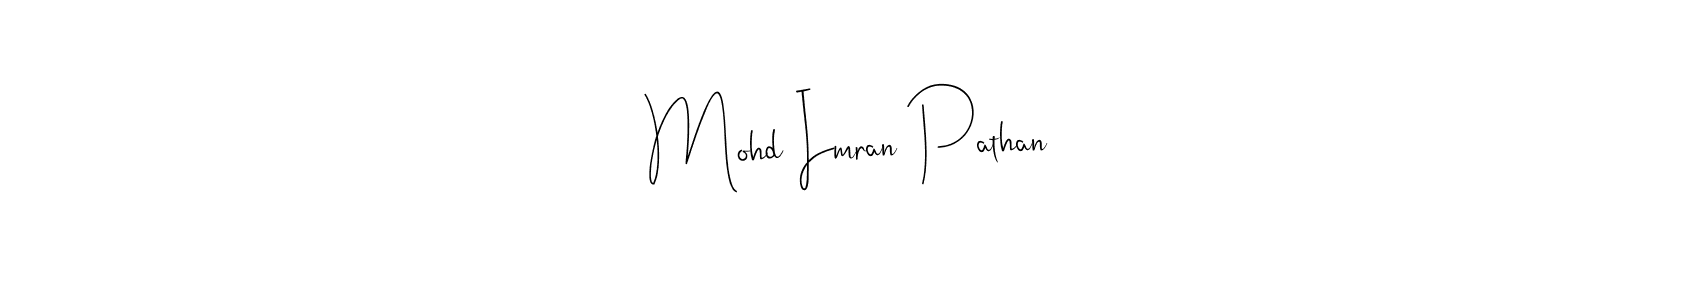 Mohd Imran Pathan